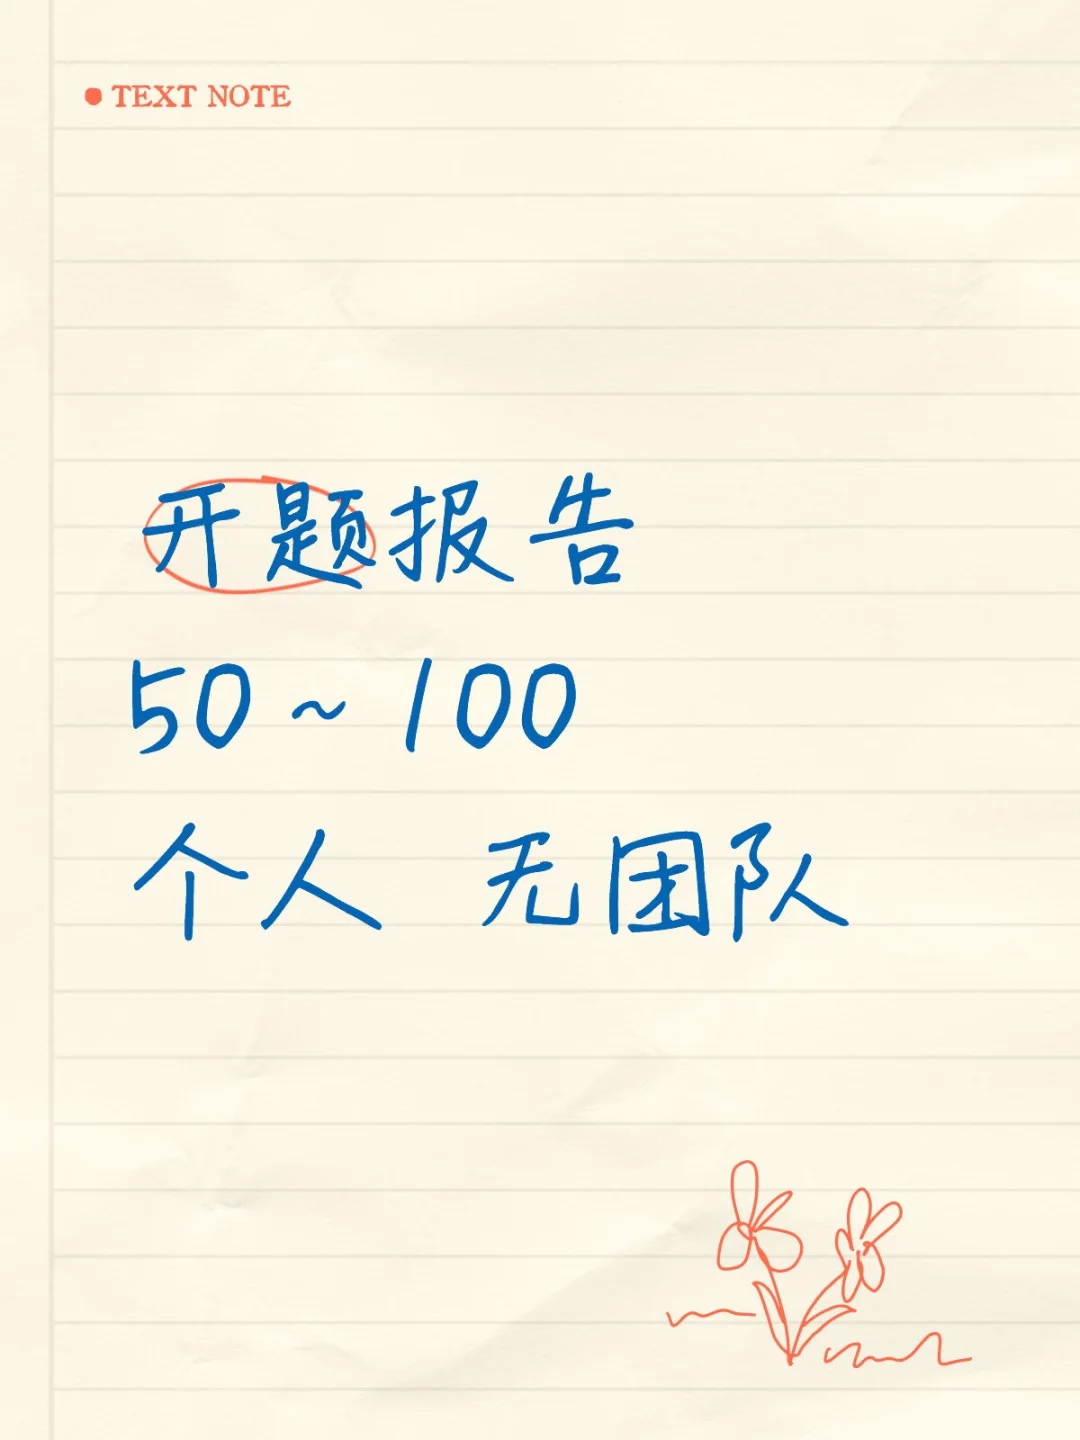 TEXT NOTE
开题报告
50~100
个人 无团队